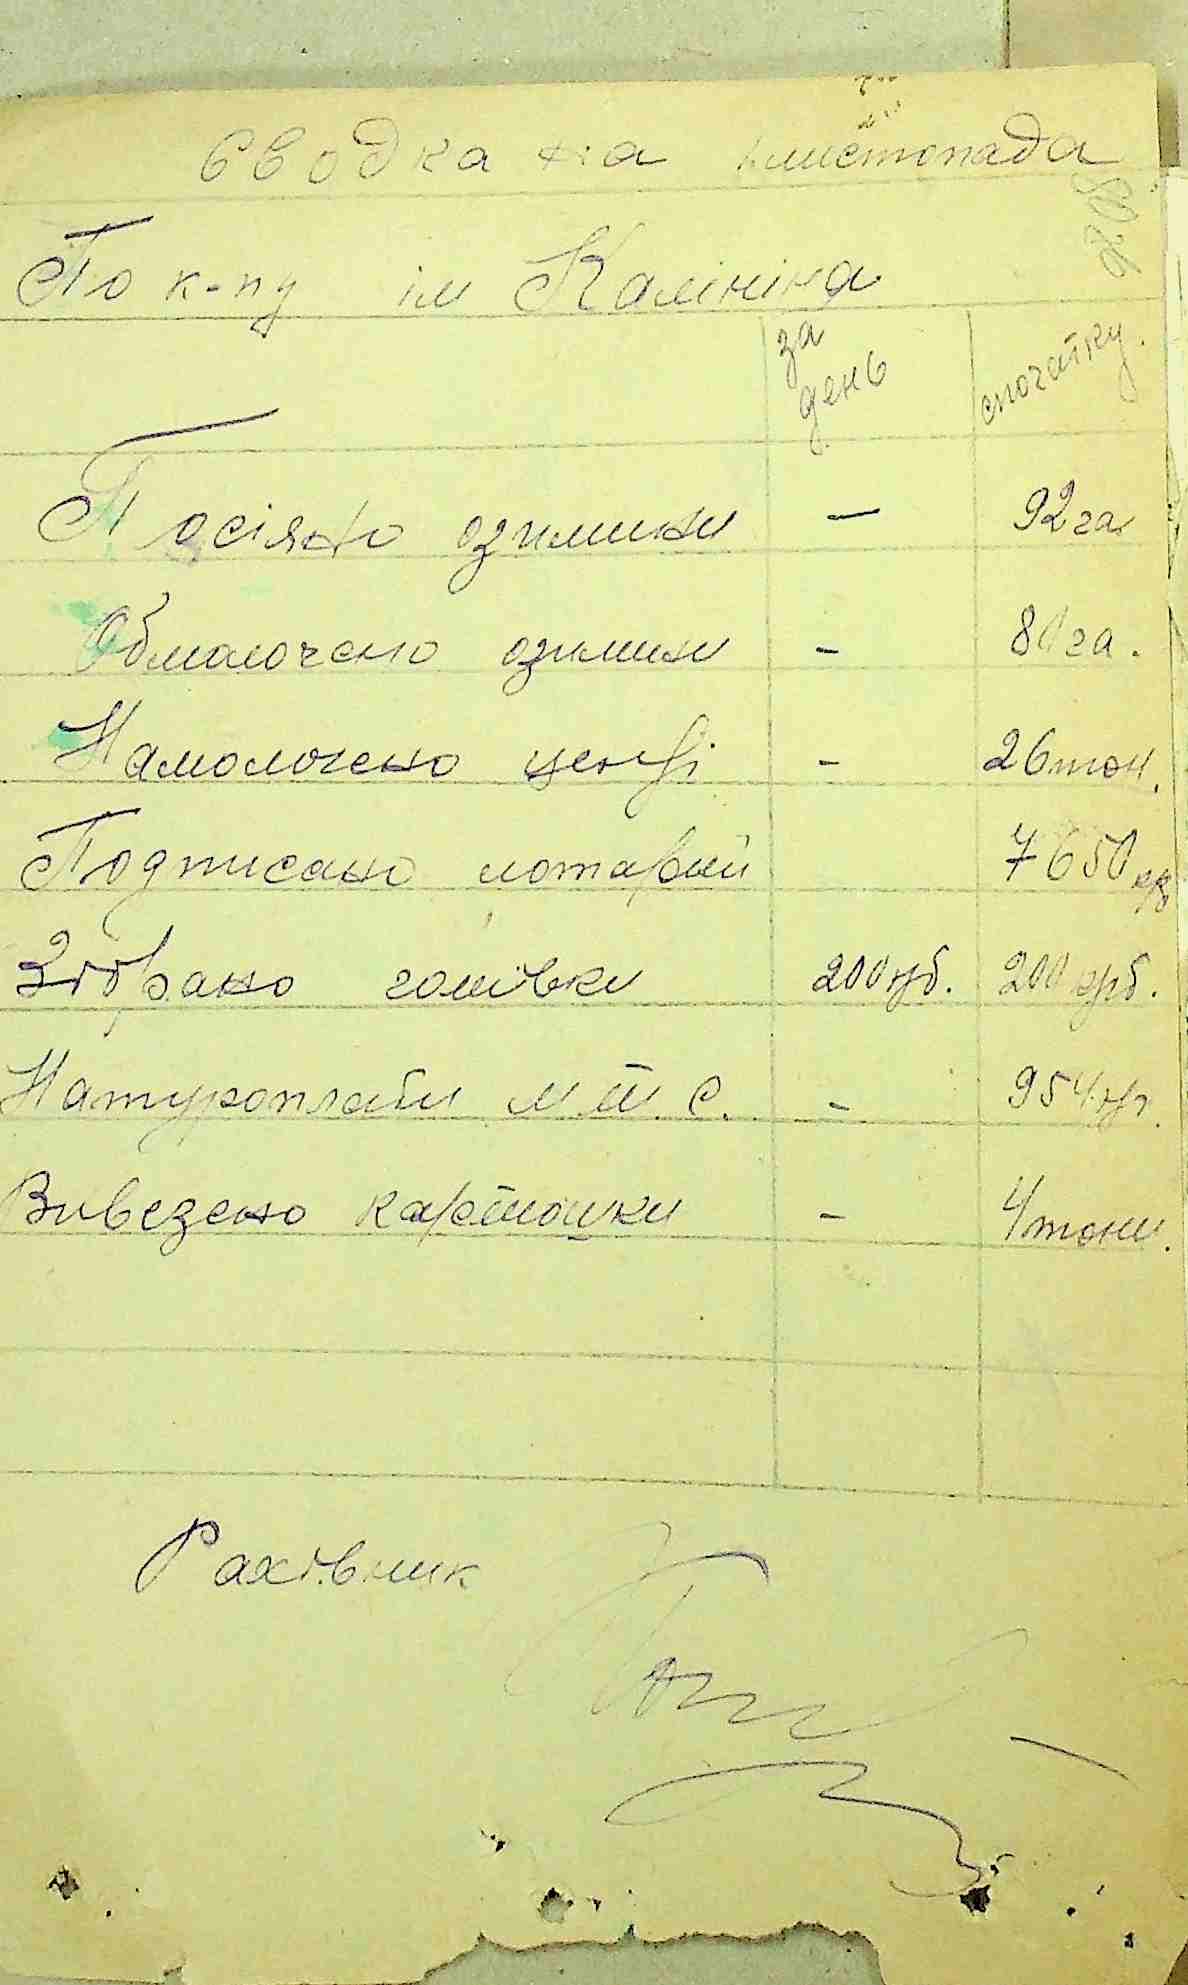 Сводка на листопада
По к-пу ім Калініна
за день спочатку.
Посіяно озимини — 92 га
Обмолочено озимини - 80 га.
Намолочено центрі - 26 тон.
Подписано лотареи 7650 кр
Зібрано готівки 200 крб. 200 крб.
Натуроплати м.т.с. - 954 цн.
Вивезено картошки - 4 тони.
Рахівник